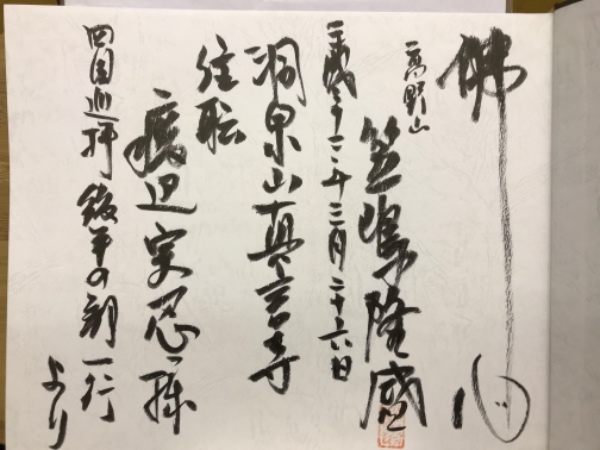 佛心
高野山
笠嶋隆盛
平成二十二年三月二十六日
洞泉山真言寺
住職
渡辺実忍様
四国巡拝後半の朝一行
より